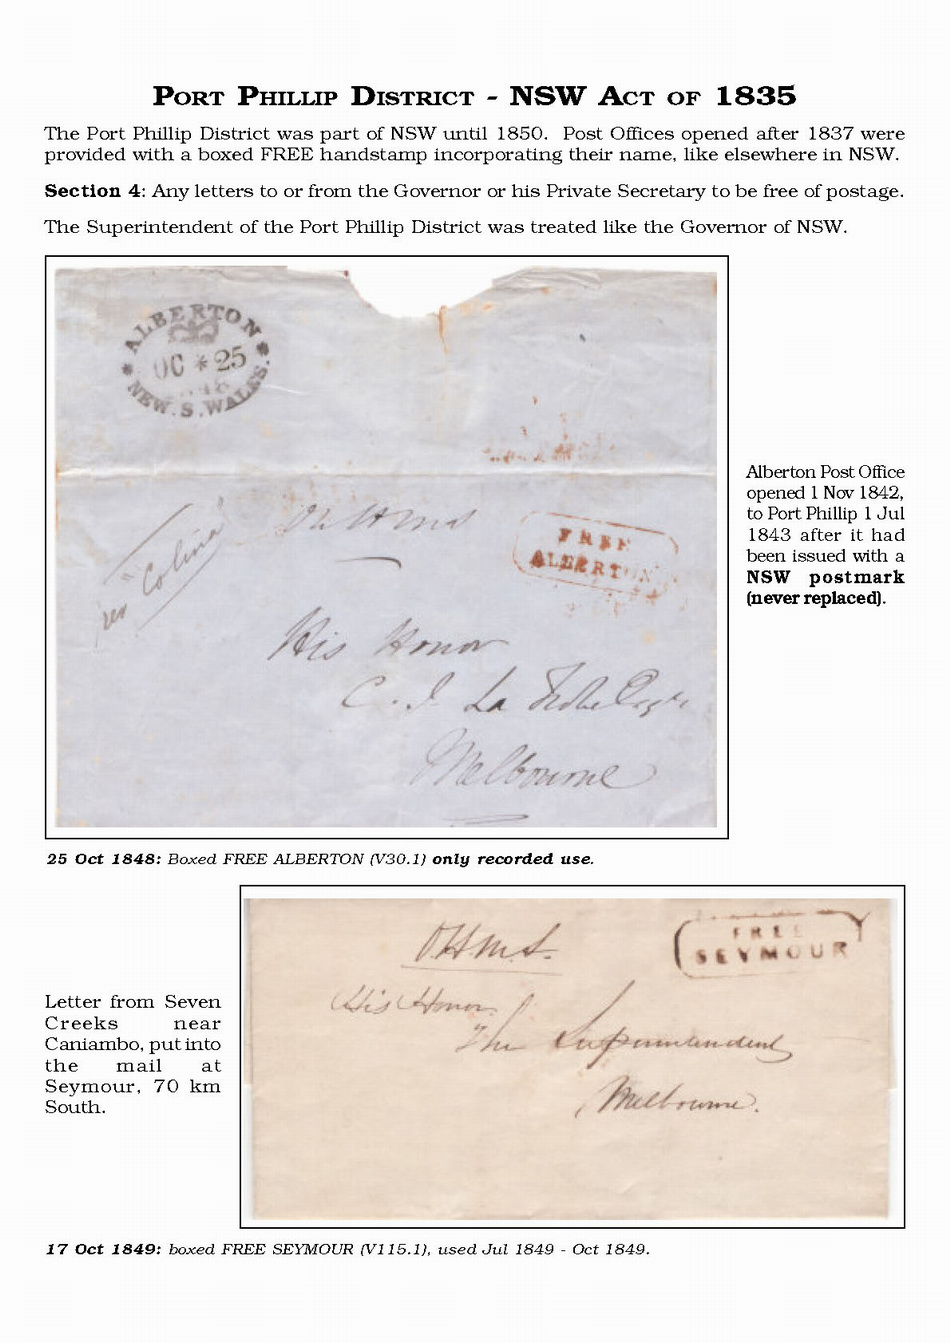 PORT PHILLIP DISTRICT - NSW ACT OF 1835
The Port Phillip District was part of NSW until 1850. Post Offices opened after 1837 were
provided with a boxed FREE handstamp incorporating their name, like elsewhere in NSW.
Section 4: Any letters to or from the Governor or his Private Secretary to be free of postage.
The Superintendent of the Port Phillip District was treated like the Governor of NSW.
ALBERTON
OC * 25
NEW.S.WALES.
FREE
ALBERTON
per "Colina"
His Honor
C. J. La Trobe Esqre
Melbourne
Alberton Post Office
opened 1 Nov 1842,
to Port Phillip 1 Jul
1843 after it had
been issued with a
NSW postmark
(never replaced).
25 Oct 1848: Boxed FREE ALBERTON (V30.1) only recorded use.
O.H.M.S.
FREE
SEYMOUR
His Honor
The Superintendent
Melbourne.
Letter from Seven
Creeks near
Caniambo, put into
the mail at
Seymour, 70 km
South.
17 Oct 1849: boxed FREE SEYMOUR (V115.1), used Jul 1849 - Oct 1849.